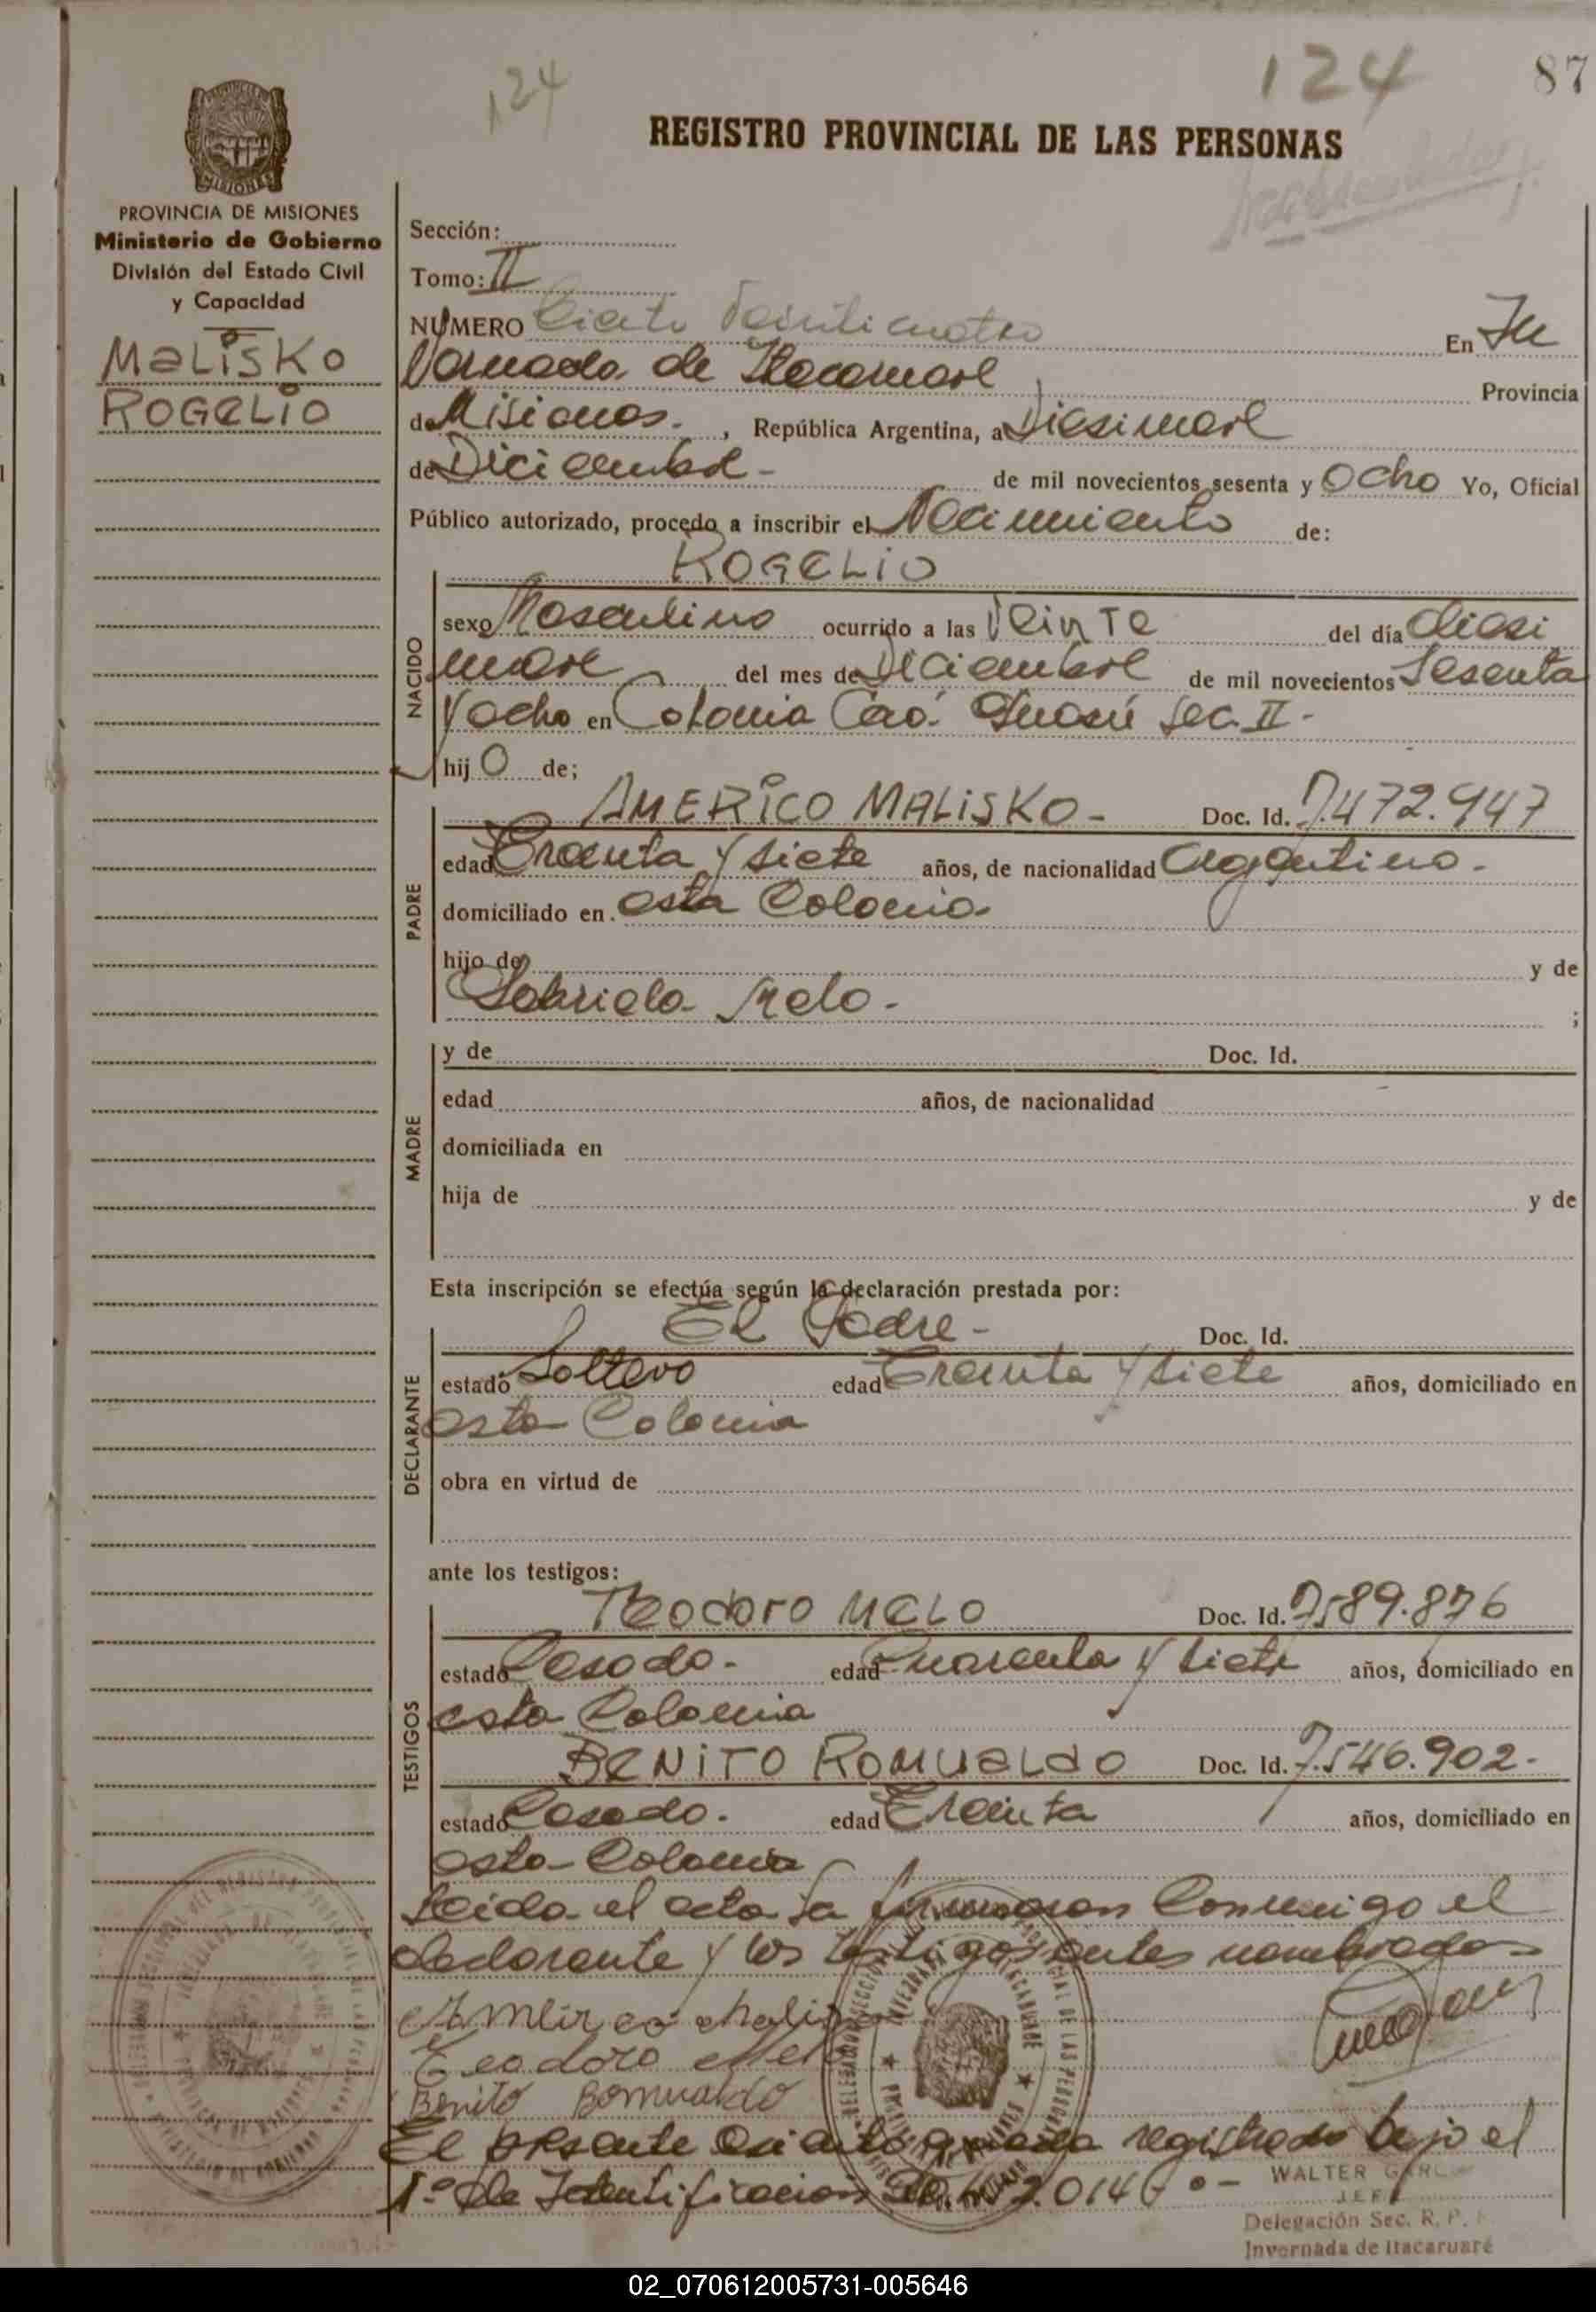 124
124
87
REGISTRO PROVINCIAL DE LAS PERSONAS
PROVINCIA DE MISIONES
Ministerio de Gobierno
División del Estado Civil
y Capacidad
MALISKO
ROGELIO
Sección:
Tomo: II
NUMERO Ciento Veinticuatro En In
vernada de Itacaruaré Provincia
de Misiones. , República Argentina, a Diesinueve
de Diciembre - de mil novecientos sesenta y Ocho Yo, Oficial
Público autorizado, procedo a inscribir el Nacimiento de:
NACIDO
ROGELIO
sexo Masculino ocurrido a las Veinte del día diesi
nueve del mes de Diciembre de mil novecientos Sesenta
y ocho en Colonia Caá Guazú Sec. II -
hij O de;
PADRE
AMERICO MALISKO - Doc. Id. 7.472.947
edad Treinta y siete años, de nacionalidad Argentino -
domiciliado en esta Colonia
hijo de y de
Gabriela Melo - ;
MADRE
y de Doc. Id.
edad años, de nacionalidad
domiciliada en
hija de y de
Esta inscripción se efectúa según la declaración prestada por:
DECLARANTE
El Padre - Doc. Id.
estado Soltero edad Treinta y siete años, domiciliado en
esta Colonia
obra en virtud de
ante los testigos:
TESTIGOS
TEODORO MELO Doc. Id. 7.589.876
estado Casado - edad Cuarenta y siete años, domiciliado en
esta Colonia
BENITO ROMUALDO Doc. Id. 7.546.902 -
estado Casado - edad Treinta años, domiciliado en
esta Colonia
Leida el acta la firmaron Conmigo el
declarante y los testigos antes nombrados -
Teodoro Melo
Benito Romualdo
El presente registrado bajo el
Nº de Identificacion
WALTER
JEFE
Delegación Sec. R. P.
Invernada de Itacaruaré
02_070612005731-005646